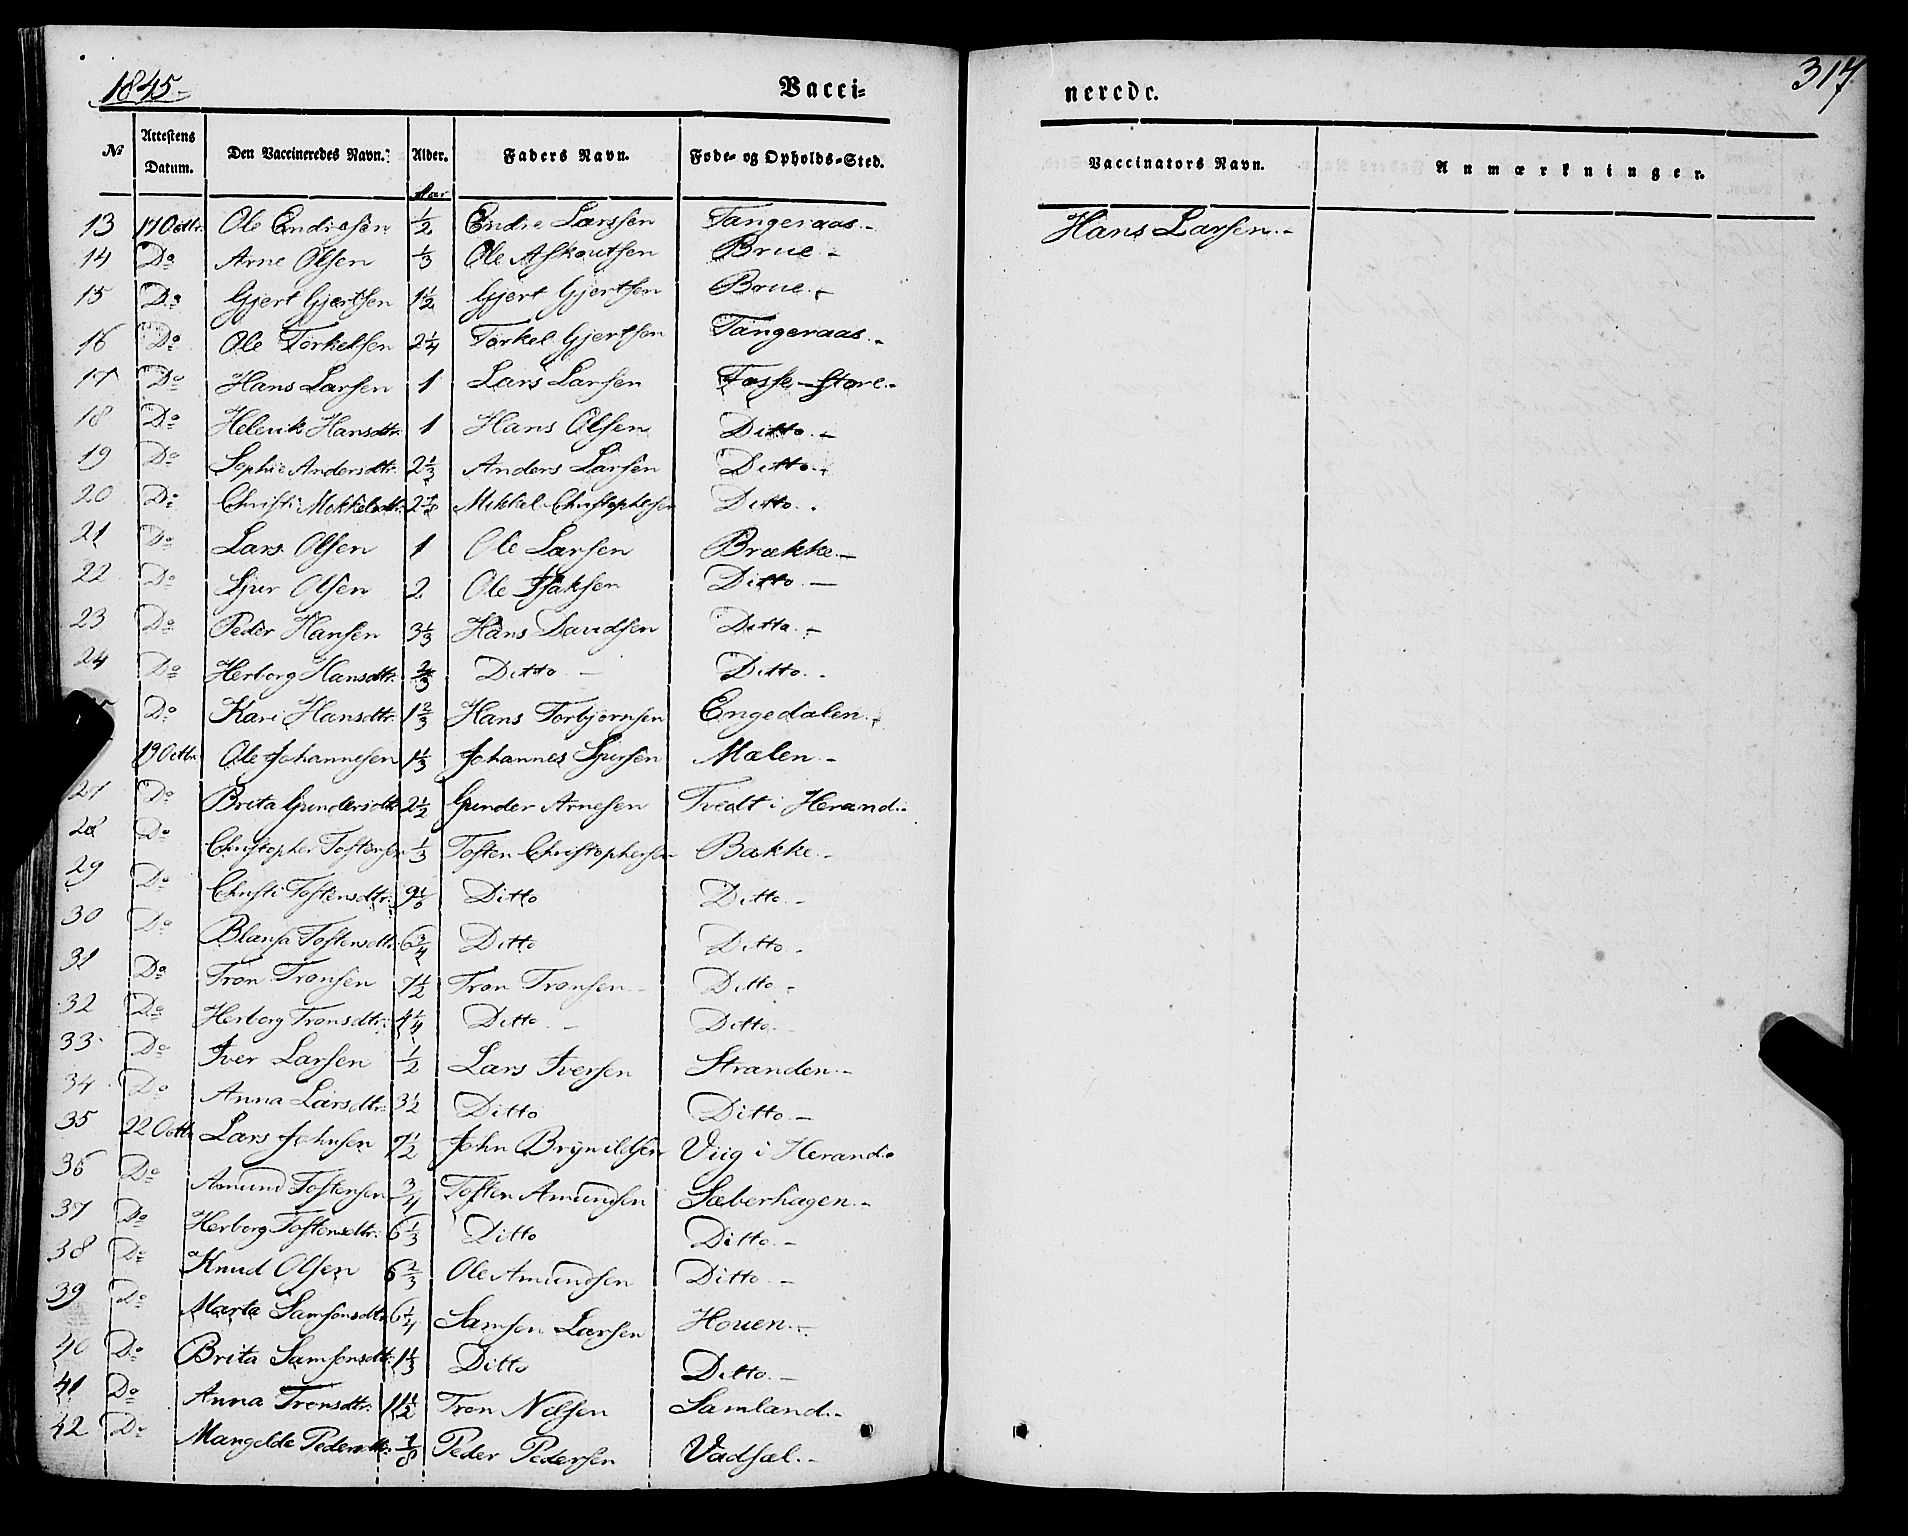 1845.
Vacci-
nerede.
317
No
Attestens Datum.
Den Vaccineredes Navn.
Alder.
Faders Navn.
Føde- og Opholds-Sted.
Vaccinators Navn.
Anmærkninger.
Aar
13 17 Octbr. Ole Endresen 1/2 Endre Larssen Tangeraas.- Hans Larsen.-
14 Do Arne Olsen 1/3 Ole Askoutsen Brue.-
15 Do Gjert Gjertsen 1 1/2 Gjert Gjertsen Brue.-
16 Do Ole Torkelsen 2 1/4 Torkel Gjertsen Tangeraas.-
17 Do Hans Larsen 1 Lars Larsen Fosse-Store.-
18 Do Helerik Hansdtr. 1 Hans Olsen Ditto.-
19 Do Sophie Andersdtr. 2 1/3 Anders Larsen Ditto.-
20 Do Christi Mikkelsdtr. 2 Mikkel Christophersen Ditto.-
21 Do Lars Olsen 1 Ole Larsen Brække.-
22 Do Sjur Olsen 2 Ole Isaksen Ditto.-
23 Do Peder Hansen 3 1/3 Hans Davidsen Ditto.-
24 Do Herborg Hansdtr. 2/3 Ditto.- Ditto.-
Do Kari Hansdtr. 1 2/3 Hans Torbjørnsen Engedalen.-
19 Octbr. Ole Johannesen 1 1/3 Johannes Sjursen Malen.-
27 Do Brita Gundersdtr. 2 1/2 Gunder Arnesen Tvedt i Herand.-
28 Do Christopher Tostensen 1/3 Tosten Christophersen Bakke.-
29 Do Christi Tostensdtr. 9 Ditto Ditto.-
30 Do Blansa Tostensdtr. 6 3/4 Ditto Ditto.-
31 Do Tron Tronsen 7 1/2 Tron Tronsen Ditto.-
32 Do Herborg Tronsdtr. 4 1/4 Ditto.- Ditto.-
33 Do Iver Larsen 1/2 Lars Iversen Stranden.-
34 Do Anna Larsdtr. 3 1/2 Ditto Ditto.-
35 22 Octbr Lars Johnsen 7 1/2 John Brynildsen Viig i Herand.-
36 Do Amund Tostensen 3/4 Tosten Amundsen Sæberhagen.-
37 Do Herborg Tostensdtr. 6 1/3 Ditto Ditto.-
38 Do Knud Olsen 6 2/3 Ole Amundsen Ditto.-
39 Do Marta Samsonsdtr. 6 1/4 Samson Larsen Houen.-
40 Do Brita Samsonsdtr. 1 1/3 Ditto Ditto.-
41 Do Anna Tronsdtr. 11 1/2 Tron Nilsen Samland.-
42 Do Mangelde Pedersdtr. 7/8 Peder Pedersen Vadsal.-